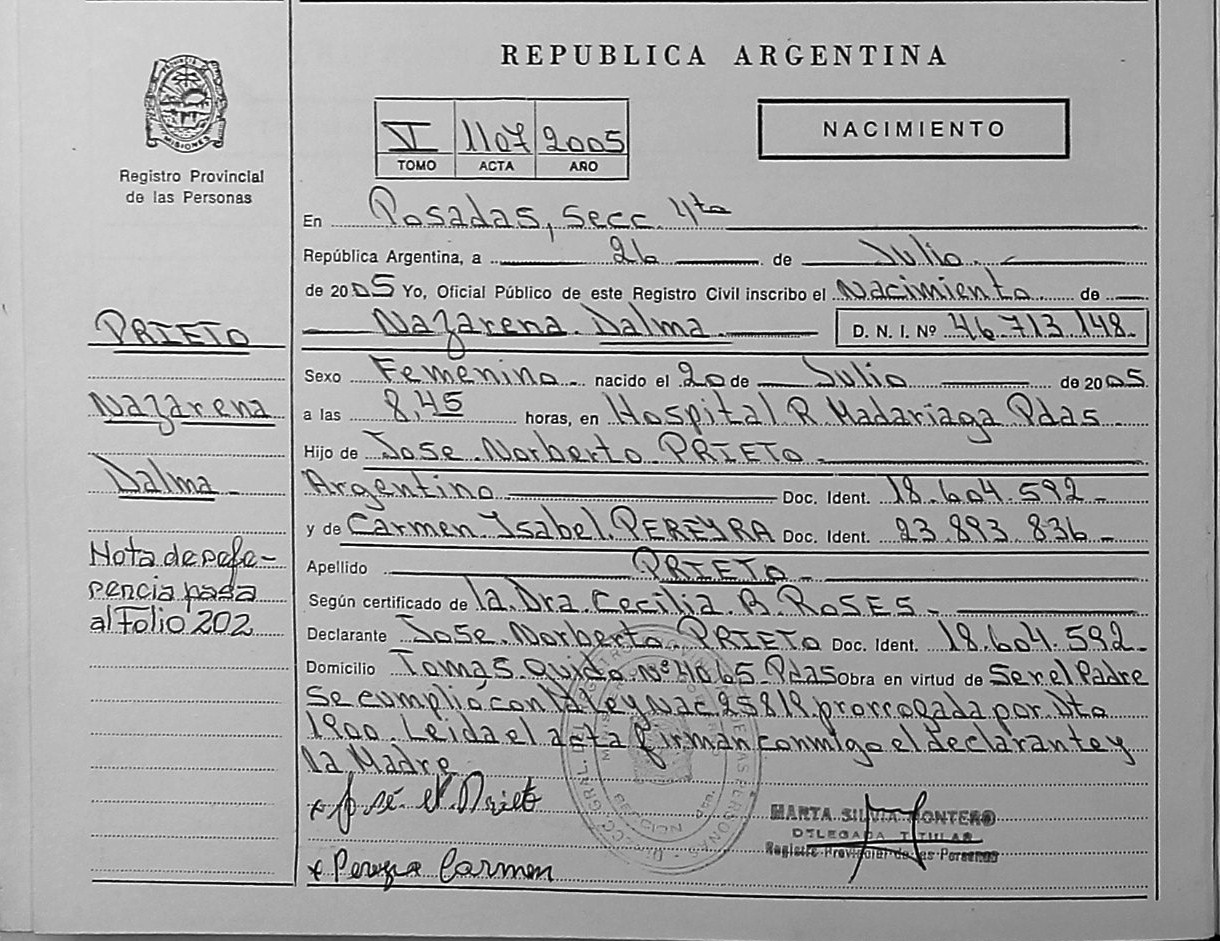 REPUBLICA ARGENTINA
MISIONES
Registro Provincial
de las Personas
V 1107 2005
TOMO ACTA AÑO
NACIMIENTO
En Posadas, Secc. 4ta
República Argentina, a 26 de Julio
de 2005 Yo, Oficial Público de este Registro Civil inscribo el Nacimiento de
Nazarena Dalma D. N. I. Nº 46.713.148
Sexo Femenino nacido el 20 de Julio de 2005
a las 8,45 horas, en Hospital R. Madariaga Pdas
Hijo de Jose Norberto PRIETO
Argentino Doc. Ident. 18.604.592
y de Carmen Ysabel PEREYRA Doc. Ident. 23.893.836
Apellido PRIETO
Según certificado de la Dra Cecilia B. ROSES
Declarante Jose Norberto PRIETO Doc. Ident. 18.604.592
Domicilio Tomás Guido Nº 4065 Pdas Obra en virtud de Ser el Padre
Se cumplió con la Ley Nac 25819 prorrogada por Dto
1900. Leida el acta firman conmigo el declarante y
la Madre
x José N Prieto
x Pereyra Carmen
MARTA SILVIA MONTERO
DELEGADA TITULAR
Registro Provincial de las Personas
PRIETO
Nazarena
Dalma
Nota de refe-
rencia pasa
al Folio 202